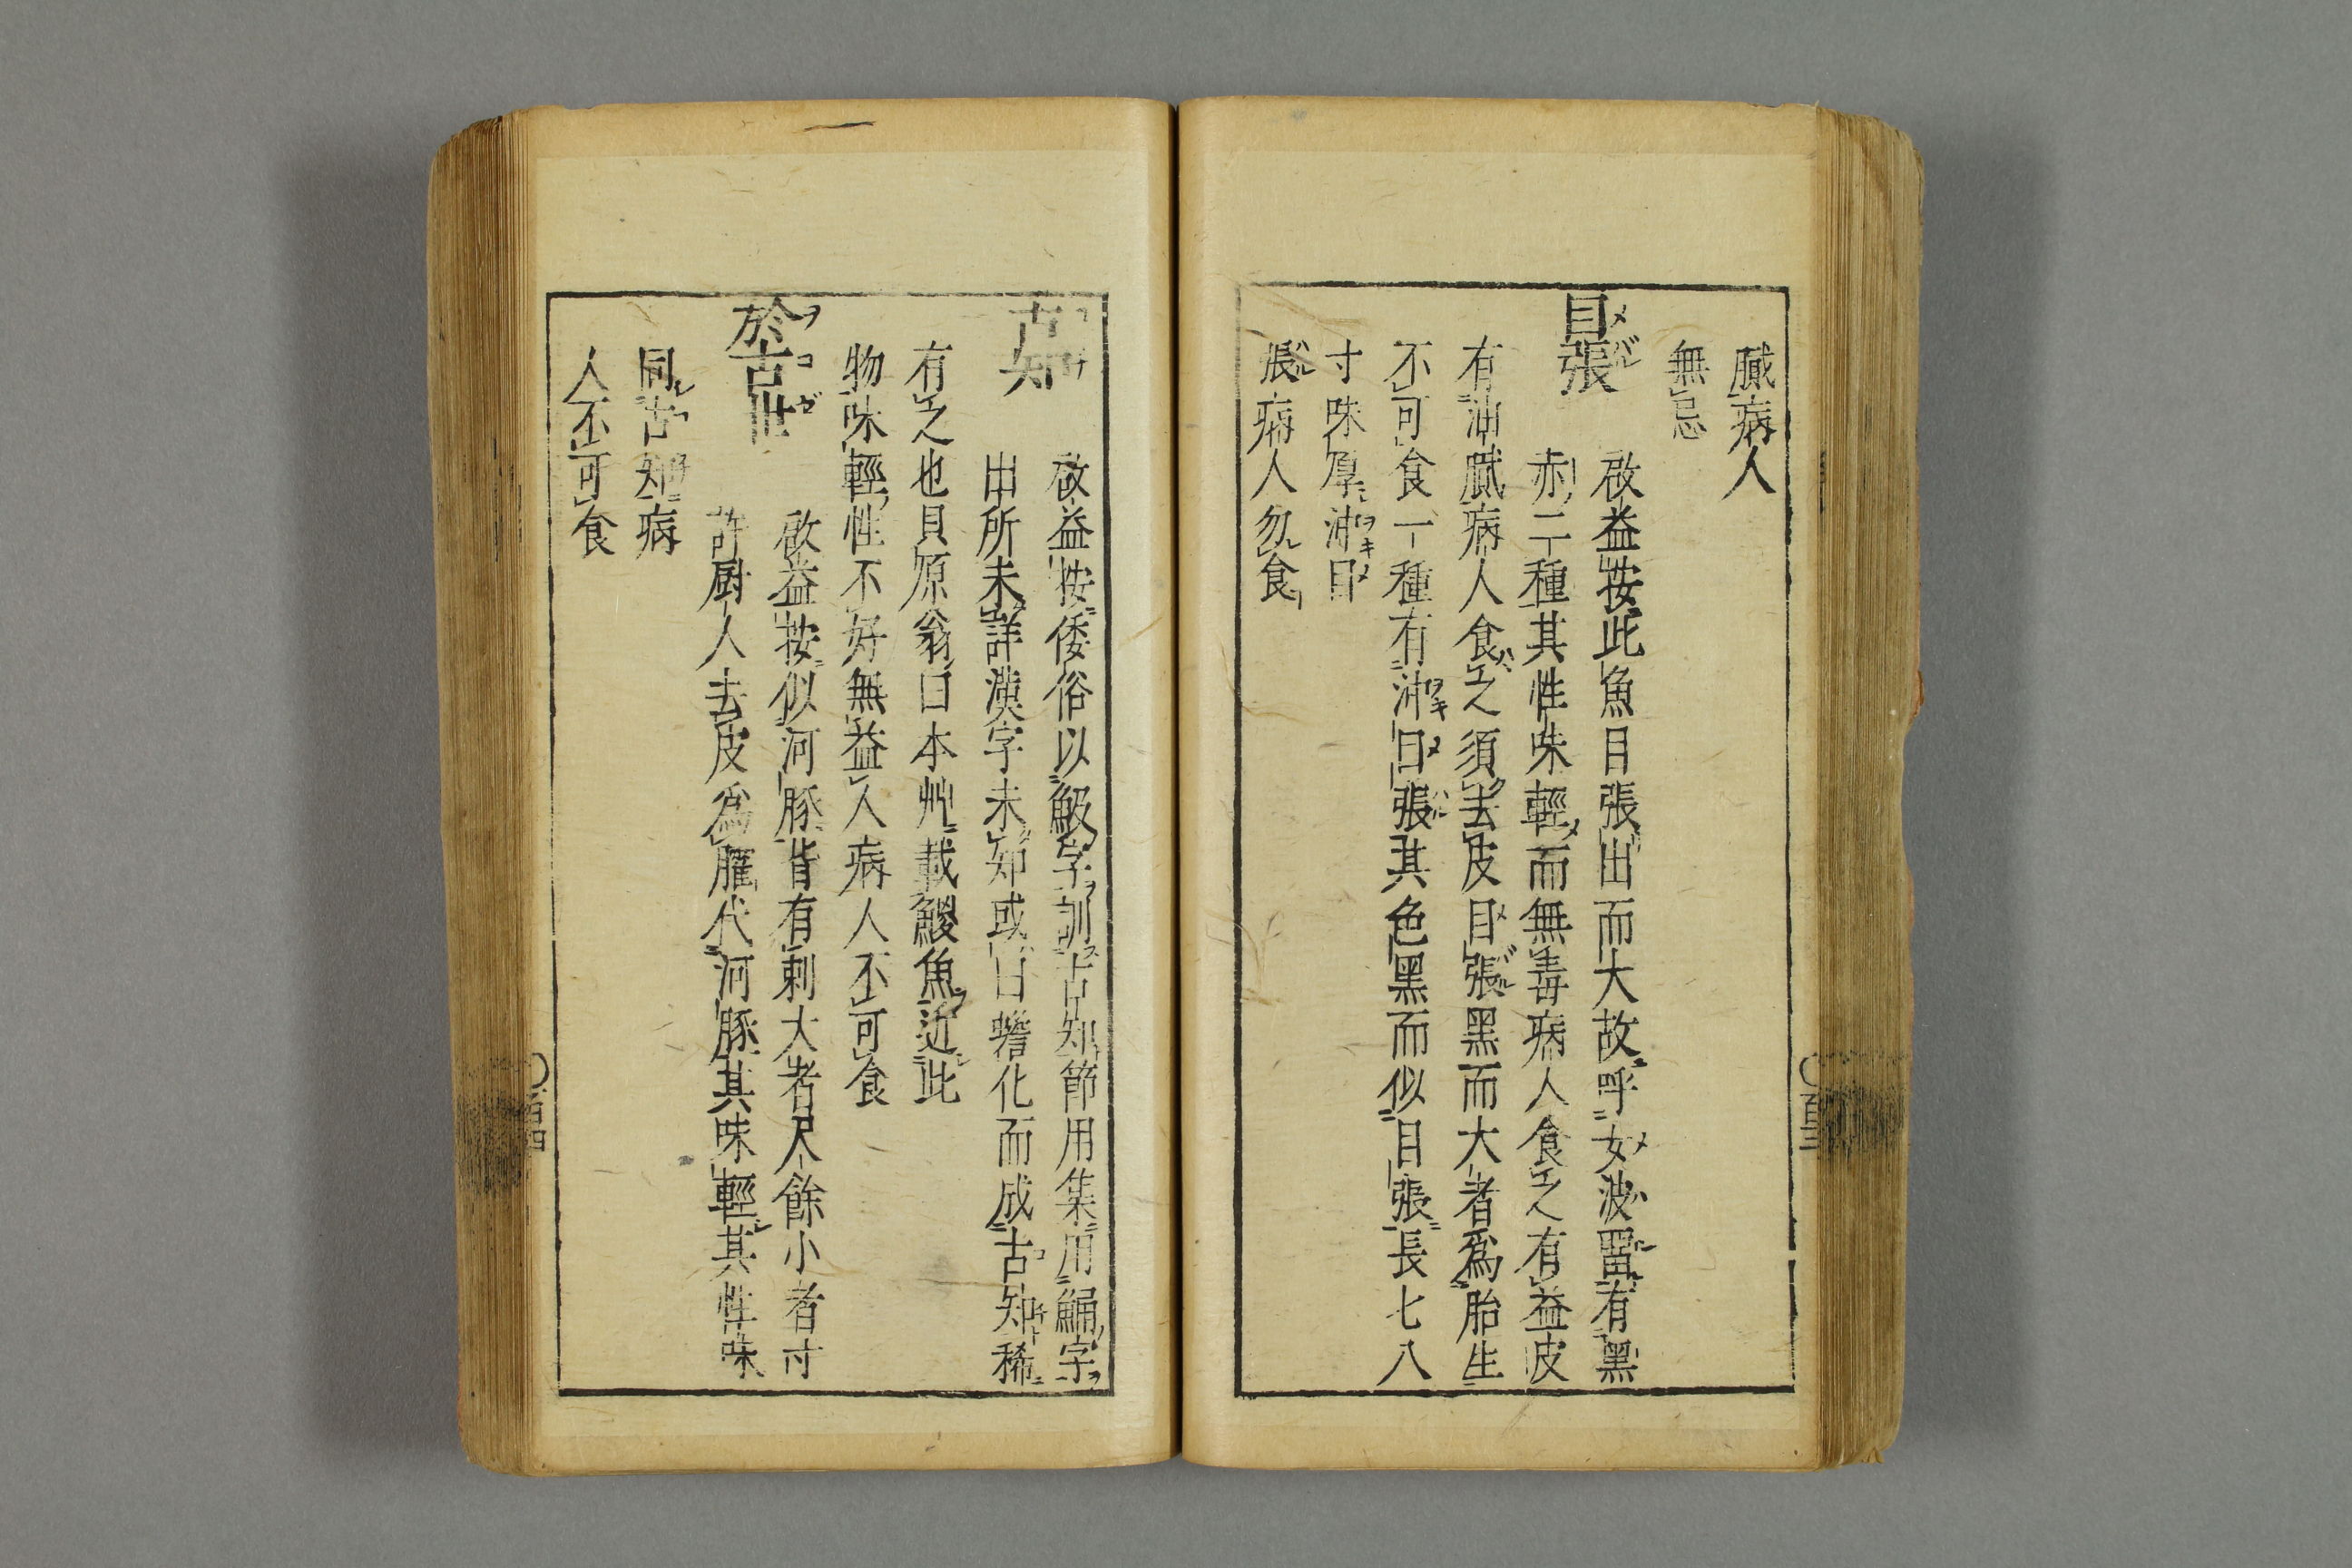 臓病人
無忌
目張
啟益按此魚目張出而大故呼女波畱有黑
赤二種其性味輕而無毒病人食之有益皮
有油膩病人食之須去皮目張黑而大者爲胎生
不可食一種有沖目張其色黑而似目張長七八
寸味厚沖目
張病人勿食
古知
啟益按倭俗以鮁字訓古知節用集用鯒字
出所未詳漢字未知或曰蟾化而成古知稀
有之也貝原翁曰本艸載鯼魚近此
物味輕性不好無益人病人不可食
於古世
啟益按似河豚背有刺大者尺餘小者寸
許厨人去皮爲臛代河豚其味輕其性味
同古知病
人不可食
百三
百四